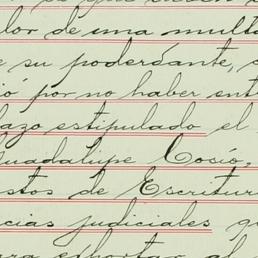 lor de una multa
e su poderdante, s
ió por no haber ent
lazo estipulado el
Guadalupe Cosío,
stos de Escritur
cias judiciales